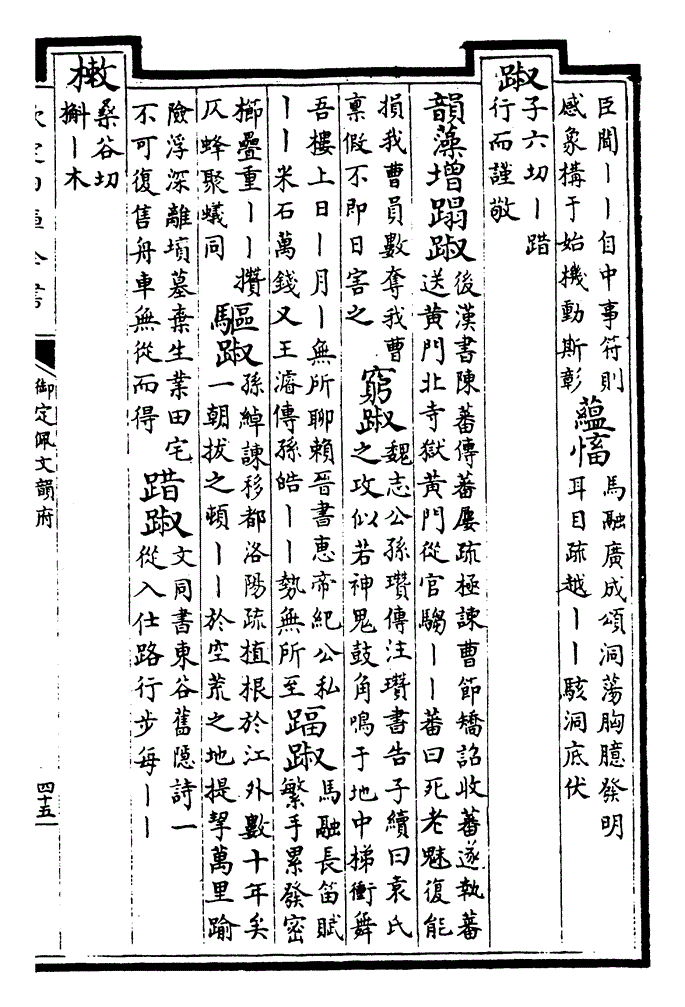 臣聞｜｜自中事符則
感象構于始機動斯彰
蘊愊
馬融廣成頌洞蕩胸臆發明
耳目疏越｜｜駭洞底伏
踧
子六切｜踖
行而謹敬
韻藻增蹋踧
後漢書陳蕃傳蕃屢疏極諫曹節矯詔收蕃遂執蕃
送黃門北寺獄黃門從官騶｜｜蕃曰死老魅復能
損我曹員數奪我曹
稟假不即日害之
窮踧
魏志公孫瓚傳注瓚書告子續曰袁氏
之攻似若神鬼鼓角鳴于地中梯衝舞
吾樓上日｜月｜無所聊賴晉書惠帝紀公私
｜｜米石萬錢又王濬傳孫皓｜｜勢無所至
踾踧
馬融長笛賦
繁手累發密
櫛疊重｜｜攢
仄蜂聚蟻同
驅踧
孫綽諫移都洛陽疏植根於江外數十年矣
一朝拔之頓｜｜於空荒之地提挈萬里踰
險浮深離墳墓棄生業田宅
不可復售舟車無從而得
踖踧
文同書東谷舊隱詩一
從入仕路行步每｜｜
樕
桑谷切
槲｜木
欽定四庫全書
御定佩文韻府
四十五